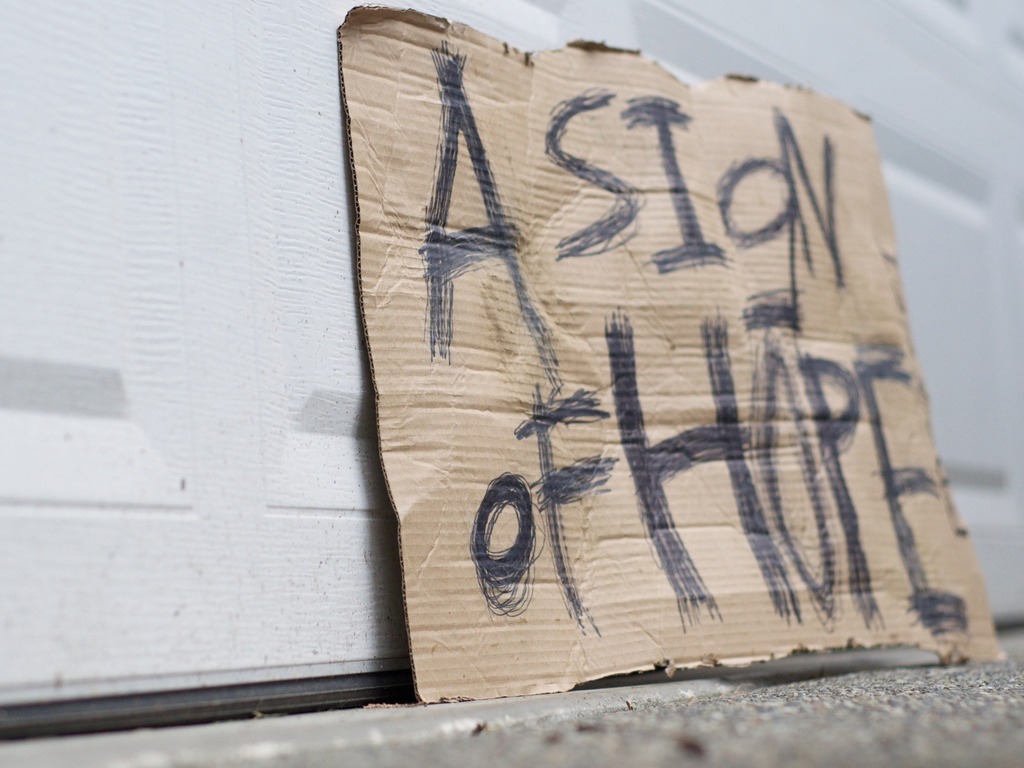 A SIgN
of HOPE